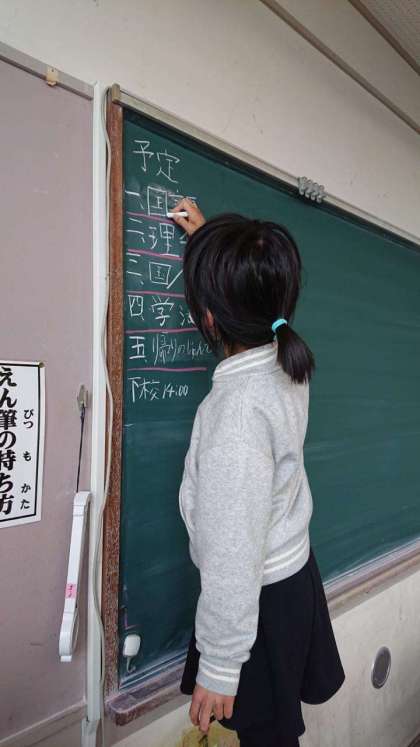 予定
一、国語
二、理
三、国
四、学活
五、帰りのじゅんび
下校 14:00
えん筆の持ち方
ぴつ も かた